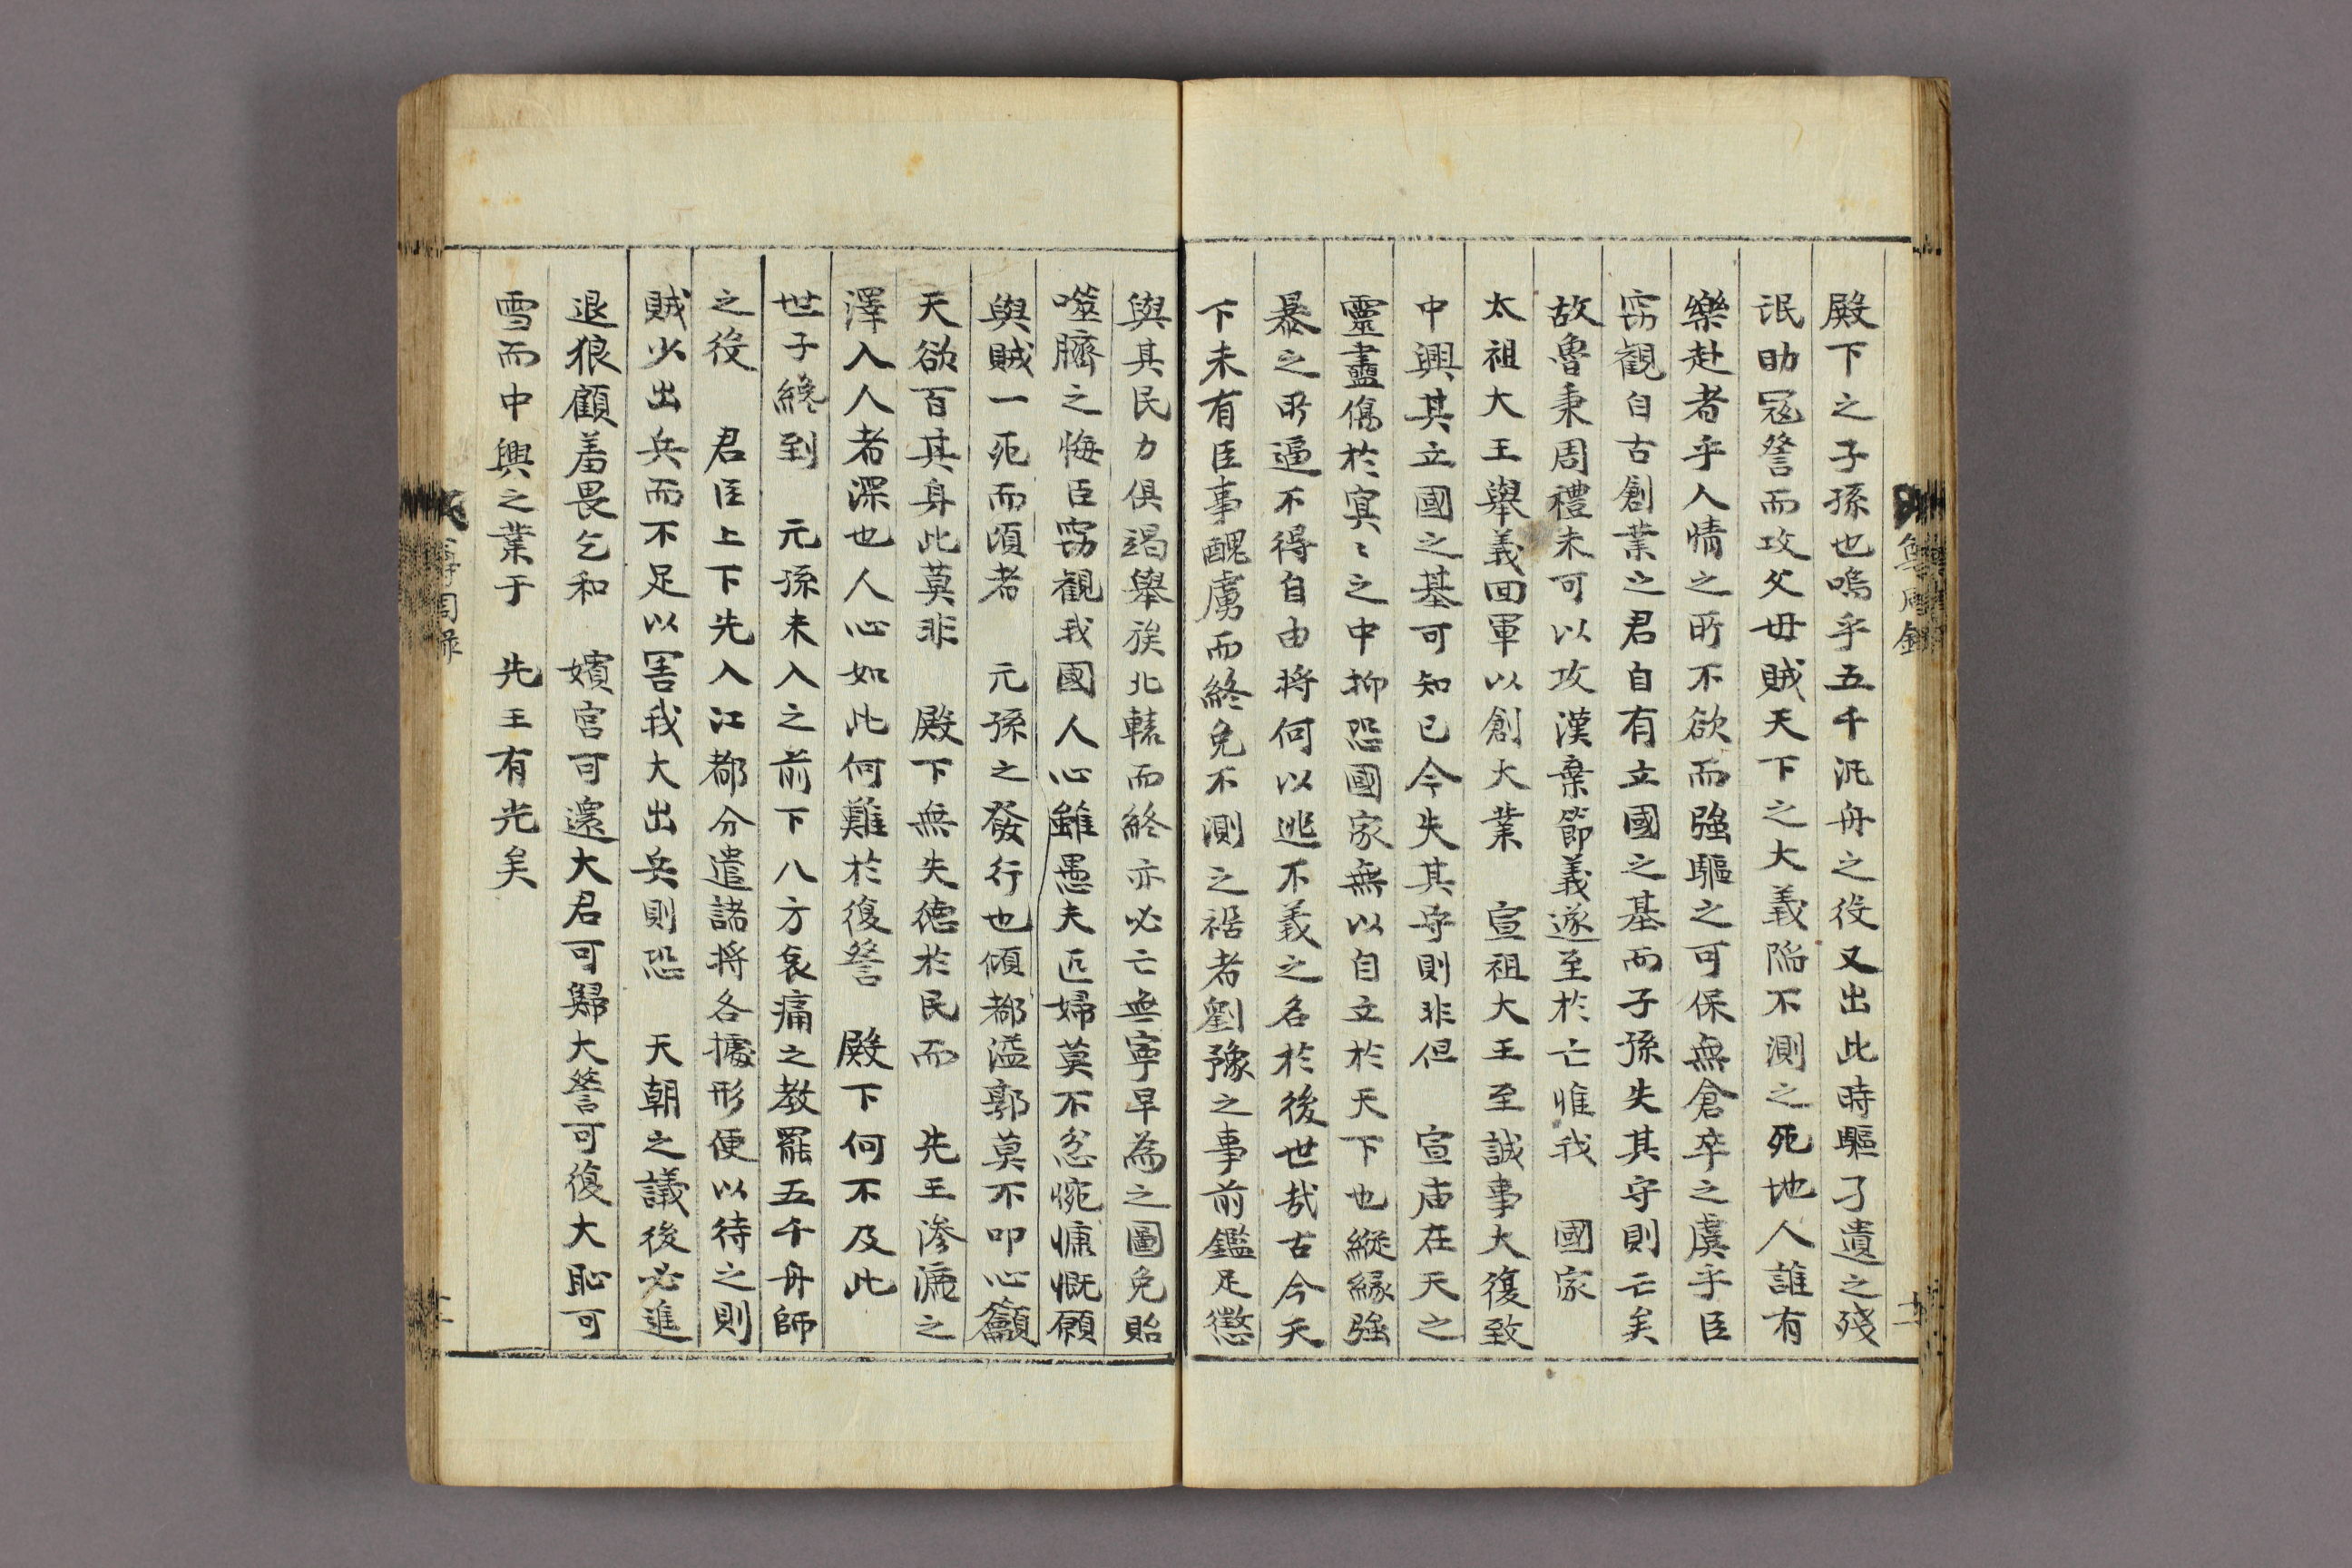 殿下之子孫也嗚乎五千汎舟之役又出此時驅孑遺之殘
氓助冦讐而攻父母賊天下之大義陷不測之死地人誰有
樂赴者乎人情之所不欲而強驅之可保無倉卒之虞乎臣
窃觀自古創業之君自有立國之基而子孫失其守則亡矣
故魯秉周禮未可以攻漢棄節義遂至於亡惟我 國家
太祖大王舉義回軍以創大業 宣祖大王至誠事大復致
中興其立國之基可知已今失其守則非但 宣庙在天之
靈盡傷於冥〻之中抑恐國家無以自立於天下也縱緣強
暴之所逼不得自由將何以逃不義之名於後世哉古今天
下未有臣事醜虜而終免不測之禍者劉豫之事前鑑足懲
與其民力俱竭舉族北轅而終亦必亡無寧早為之圖免貽
噬臍之悔臣窃觀我國人心雖愚夫匹婦莫不忿惋慷慨願
與賊一死而頃者 元孫之發行也傾都溢郭莫不叩心籲
天欲百其身此莫非 殿下無失德於民而 先王滲漉之
澤入人者深也人心如此何難於復讐 殿下何不及此
世子纔到 元孫未入之前下八方哀痛之教罷五千舟師
之役 君臣上下先入江都分遣諸將各據形便以待之則
賊少出兵而不足以害我大出兵則恐 天朝之議後必進
退狼顧羞畏乞和 嬪宮可還大君可歸大讐可復大恥可
雪而中興之業于 先王有光矣